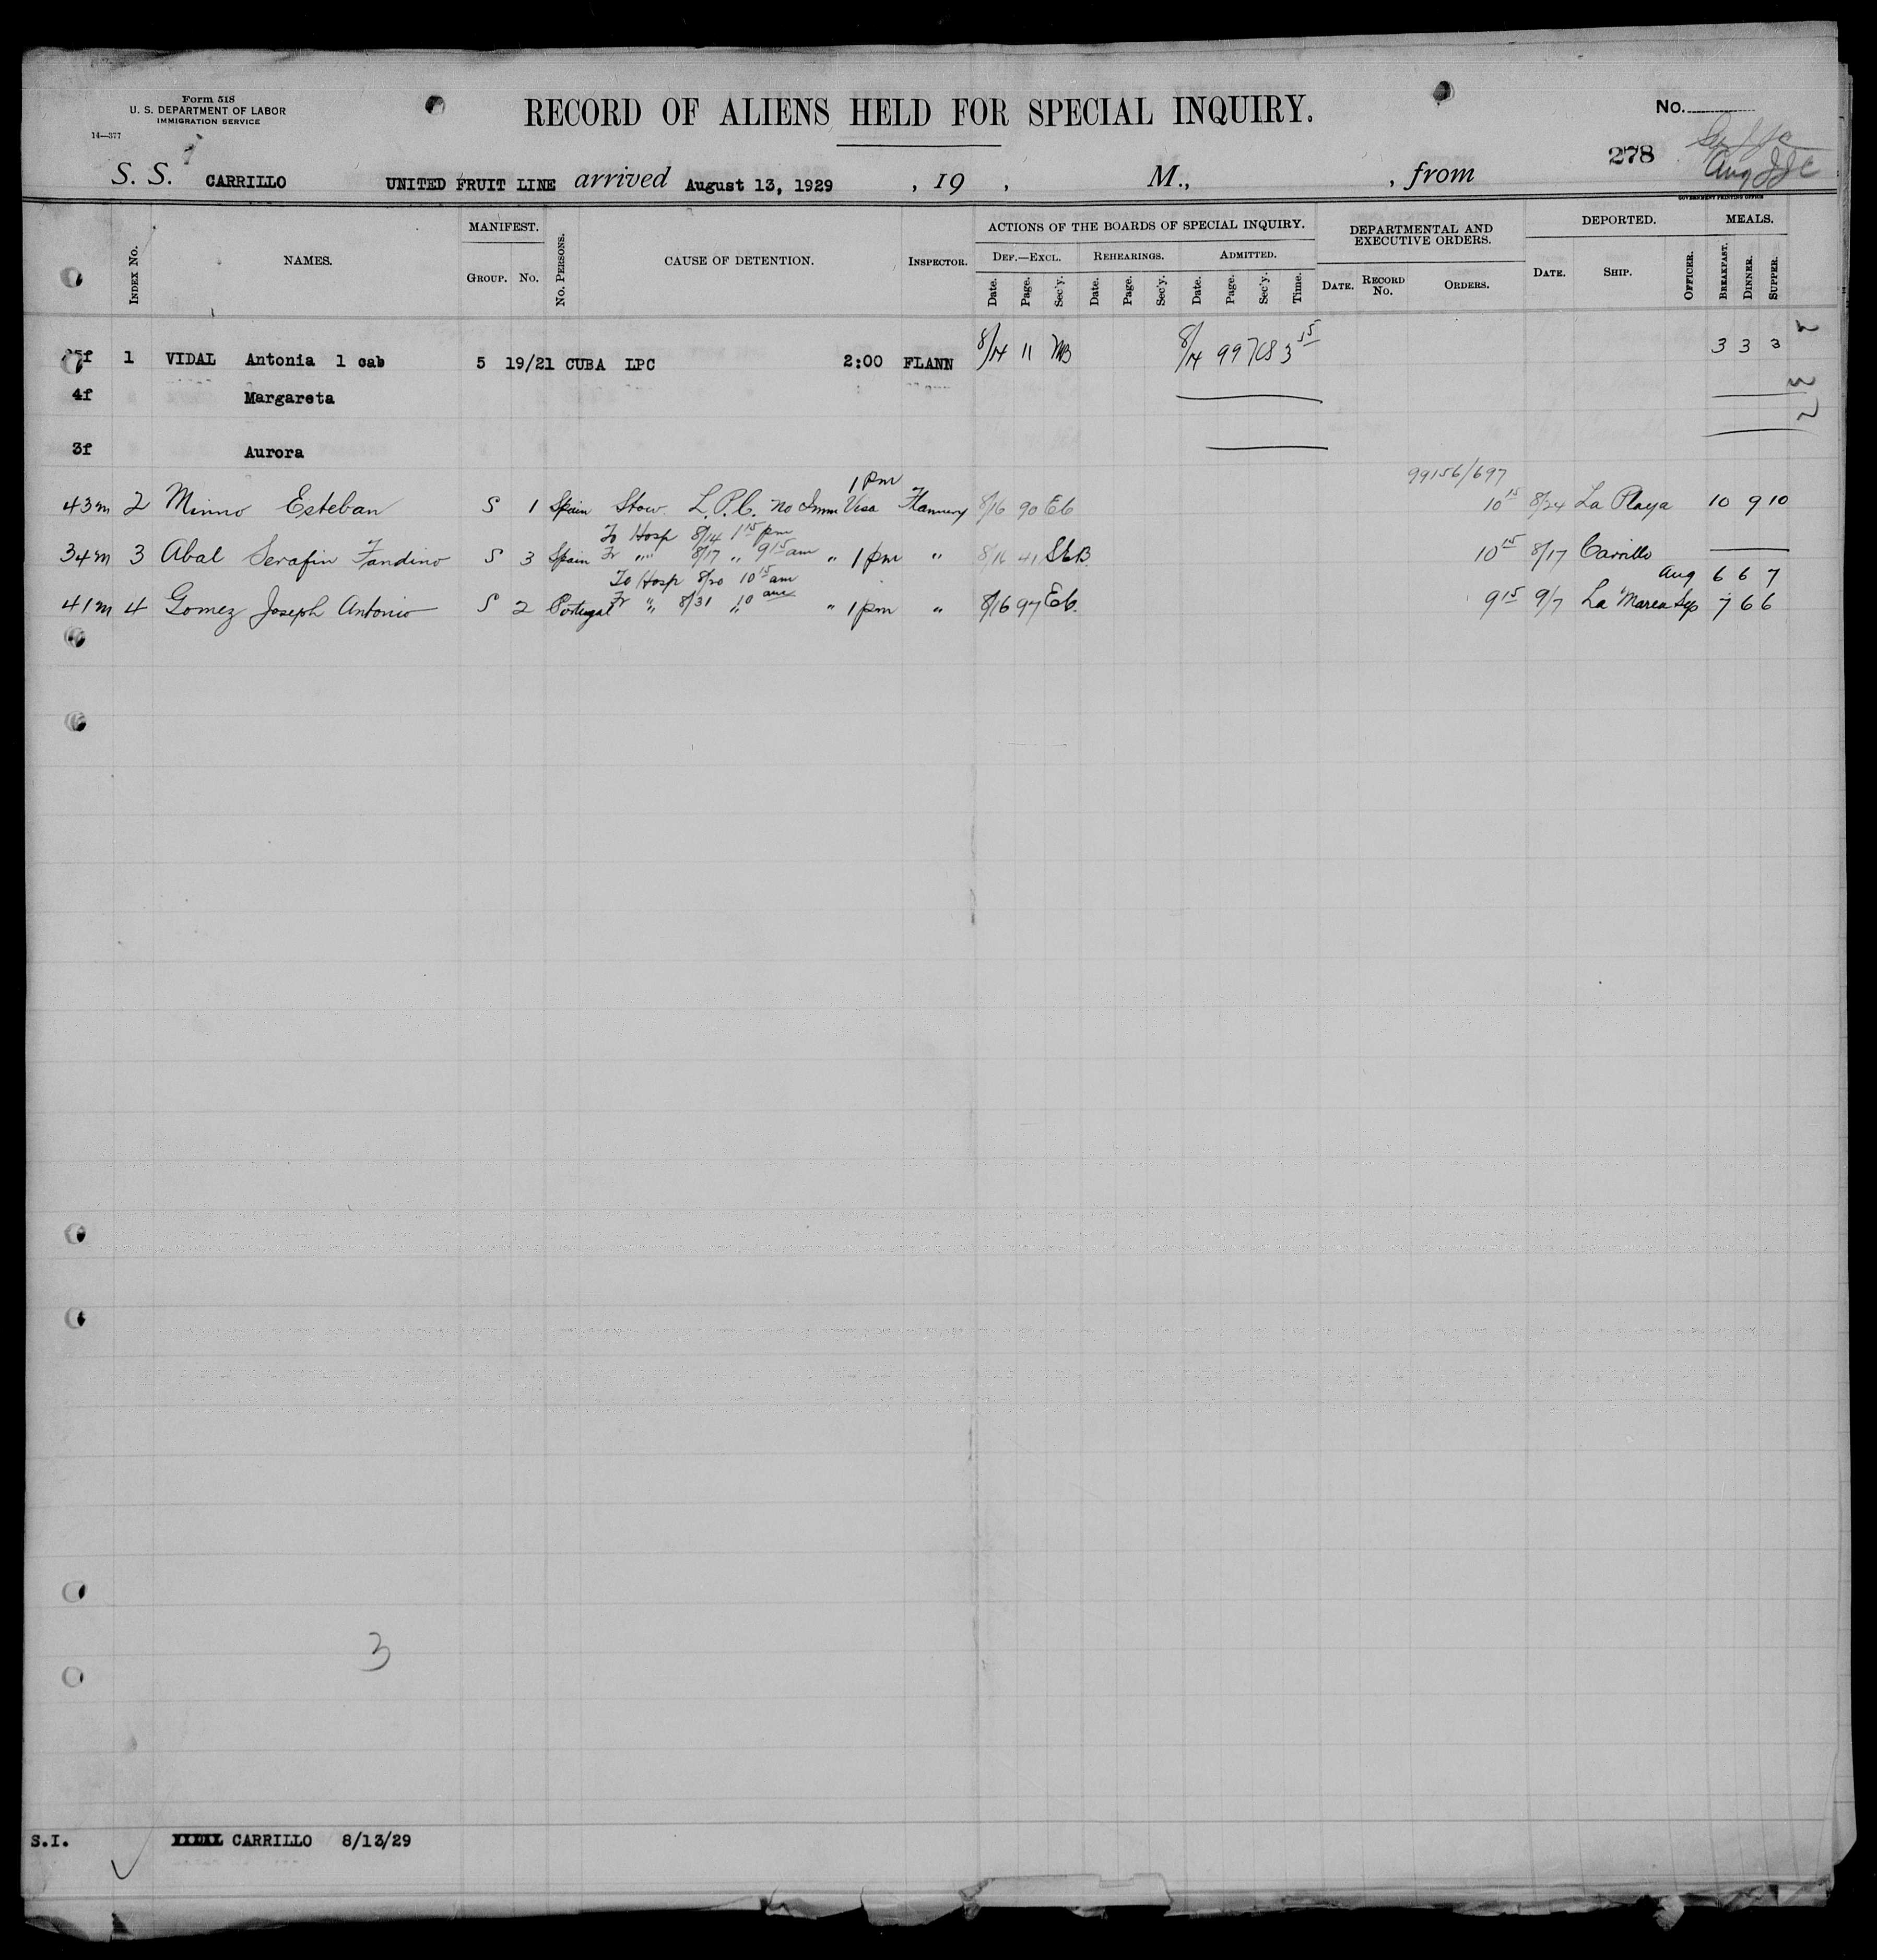 Form 518
U. S. DEPARTMENT OF LABOR
IMMIGRATION SERVICE
14—377
RECORD OF ALIENS HELD FOR SPECIAL INQUIRY.
No.
278
Aug JJC
S. S. CARRILLO UNITED FRUIT LINE arrived August 13, 1929 , 19 , M., , from
GOVERNMENT PRINTING OFFICE
Index No. NAMES. MANIFEST. Group. No. No. Persons. CAUSE OF DETENTION. Inspector. ACTIONS OF THE BOARDS OF SPECIAL INQUIRY. DEPARTMENTAL AND EXECUTIVE ORDERS. DEPORTED. MEALS.
Def.—Excl. Rehearings. Admitted.
Date. Page. Sec'y. Date. Page. Sec'y. Date. Page. Sec'y. Time. Date. Record No. Orders. Date. Ship. Officer. Breakfast. Dinner. Supper.
1 VIDAL Antonia 1 cab 5 19/21 CUBA LPC 2:00 FLANN 8/14 11 8/14 3 15 3 3 3 2
4f Margareta 3
3f Aurora 2
99156/697
1 pm
43m 2 Minno Esteban S 1 Spain Stow. L.P.C. No Imm Visa Flannery 8/16 90 Eb 10 15 8/24 La Playa 10 9 10
To Hosp 8/14 1 15 pm
34m 3 Abal Serafin Fandino S 3 Spain Fr " " 8/17 " 9 15 am " 1 pm " 8/16 41 10 15 8/17 Carrillo
To Hosp 8/20 10 15 am
Aug 6 6 7
41m 4 Gomez Joseph Antonio S 2 Portugal Fr " " 8/31 " 10 am " 1 pm " 8/16 97 Eb. 9 15 9/7 La Marea Sep 7 6 6
3
S.I. CARRILLO 8/13/29